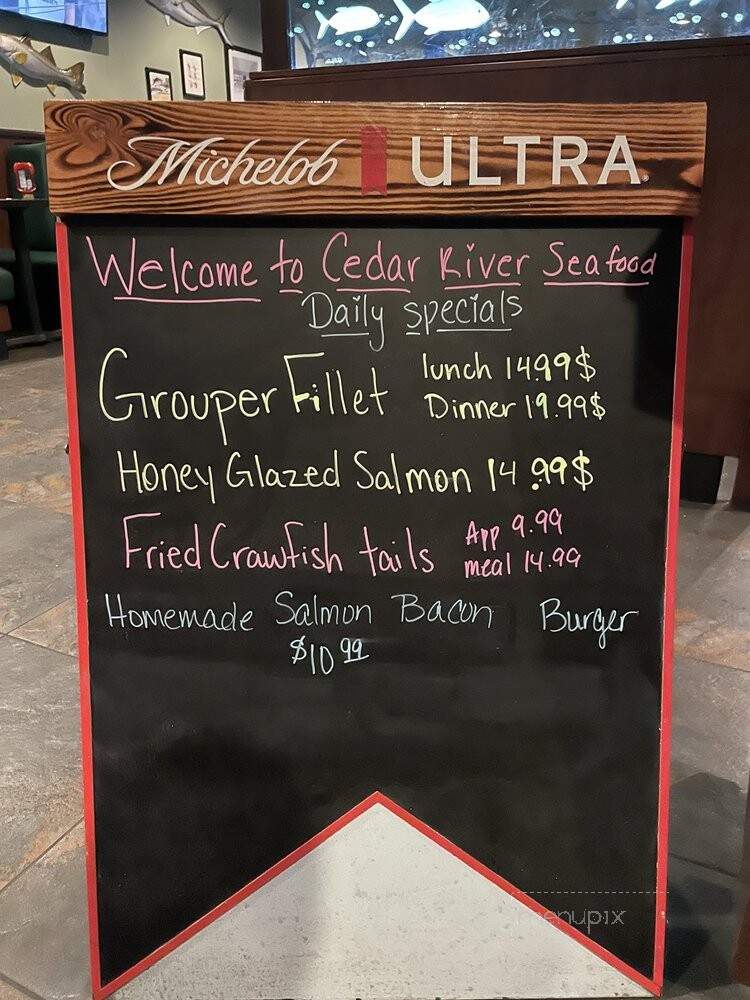 Michelob ULTRA
Welcome to Cedar River Seafood
Daily specials
Grouper Fillet lunch 14.99$
Dinner 19.99$
Honey Glazed Salmon 14.99$
Fried Crawfish tails App 9.99
meal 14.99
Homemade Salmon Bacon Burger
$10 99
menupix